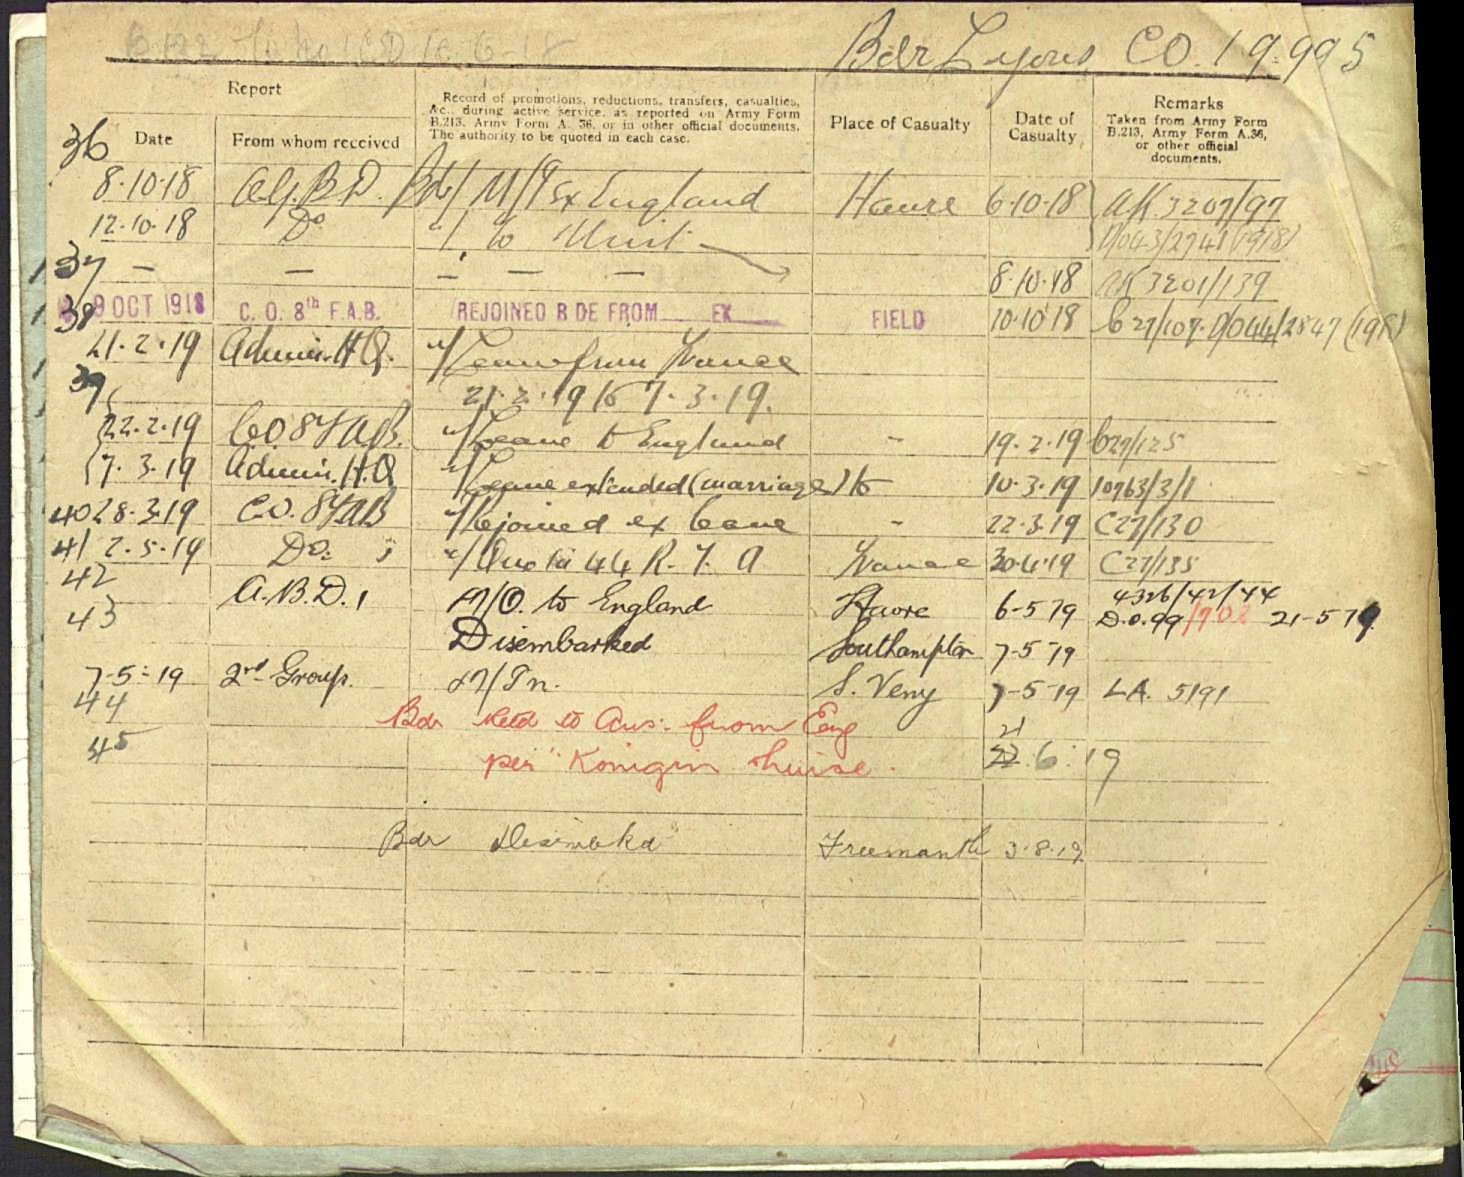 Bdr Lyons CO. 19.995
Report
Record of promotions, reductions, transfers, casualties,
&c., during active service, as reported on Army Form
B.213, Army Form A. 36, or in other official documents.
The authority to be quoted in each case.
Place of Casualty
Date of
Casualty
Remarks
Taken from Army Form
B.213, Army Form A.36,
or other official
documents.
36
Date From whom received
8.10.18 A.G.B.D. Bdr/ M/I ex England Havre 6.10.18 AK 3207/97
12.10.18 Do "/ to Unit D/043/2741 (1918)
37 — — — — — 8.10.18 AK 3201/139
9 OCT 1918 C. O. 8th F.A.B. REJOINED B DE FROM EX FIELD 10.10.18 C27/107. D/044/2847 (1918)
38
21.2.19 Admin. H.Q. "/ Leave from France
39 21.2.19 to 7.3.19.
22.2.19 CO 8 FAB. "/ Leave to England - 19.2.19 C27/125
7.3.19 Admin. H.Q "/ Leave extended (marriage) to 10.3.19 10963/3/1
40 28.3.19 C.O. 8 FAB "/ Rejoined ex leave - 22.3.19 C27/130
41 2.5.19 Do. "/ Quota 44 R.F.A France 30.4.19 C27/135
42 A.B.D. M/O. to England Havre 6-5-19 4326/42/44
43 D.O.99/702 21-5-19
Disembarked Southampton 7-5-19
7-5-19 2nd Group. M/In. S. Veny 7-5-19 LA. 5191
44 Bdr Retd to Aus: from Eng 21
45 per "Konigin Luise. 22.6.19
Bdr Disembkd Freemantle 3.8.19